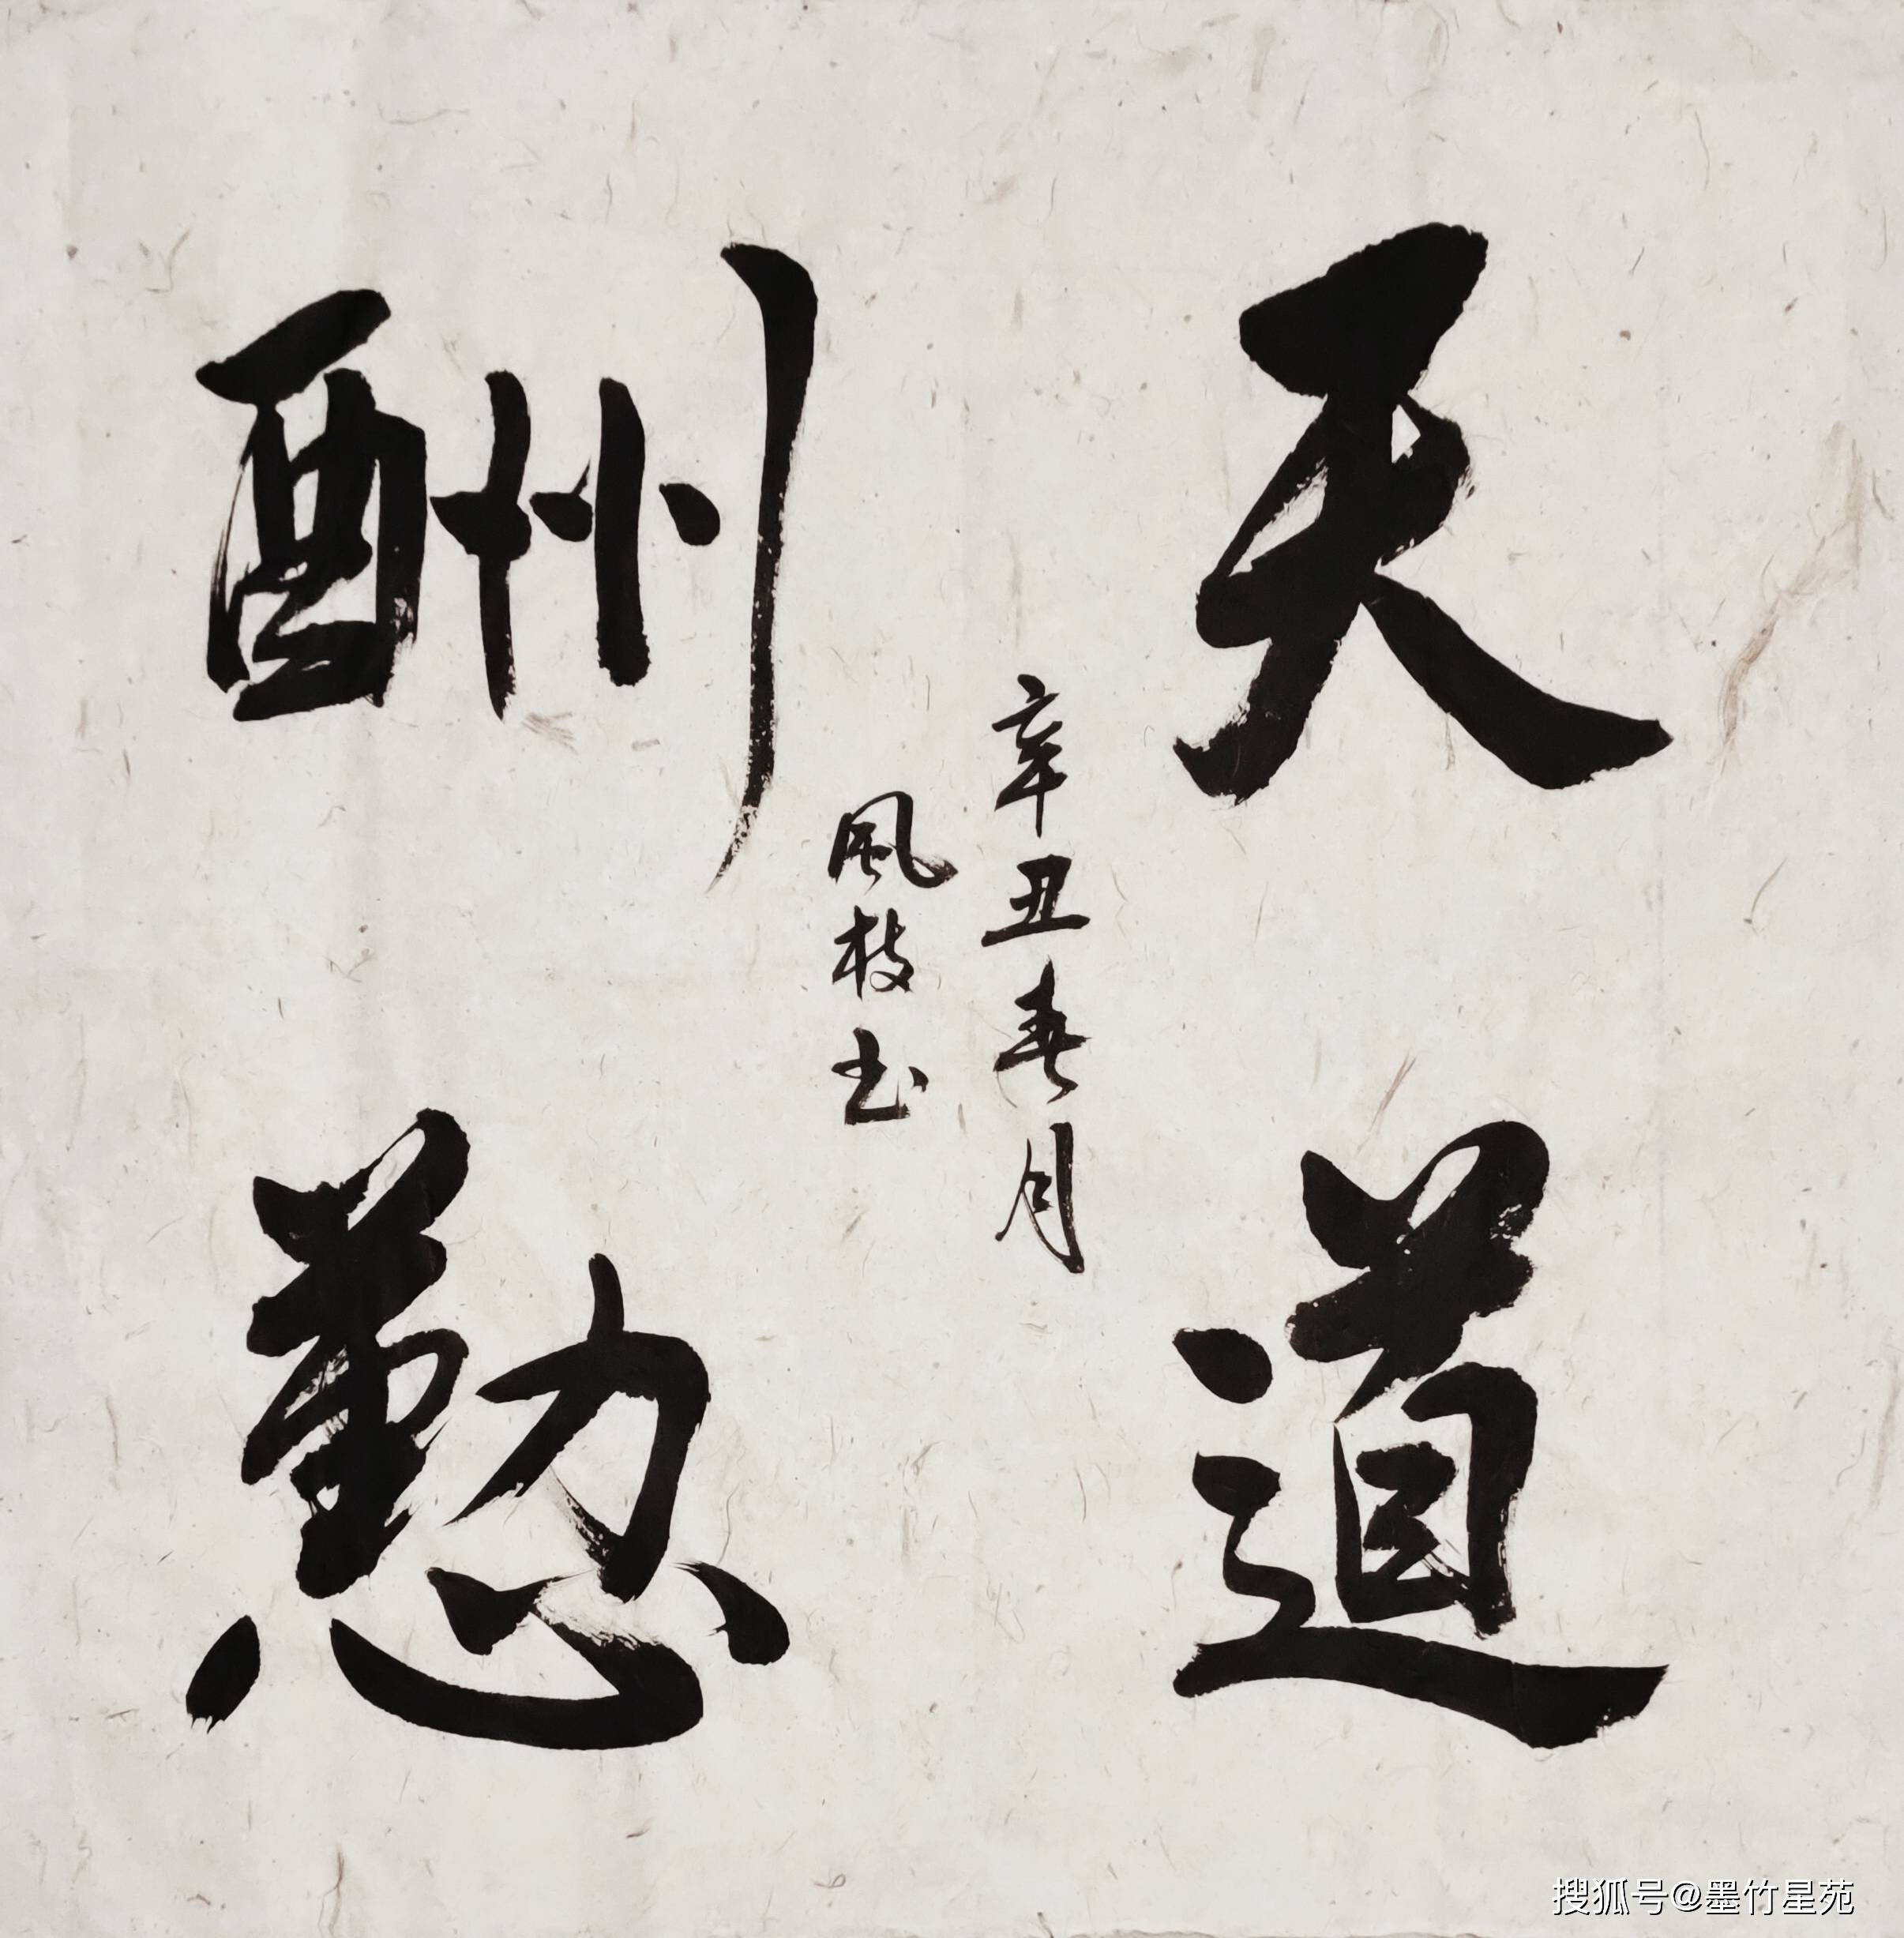 天道
酬懃
辛丑春月
风枝书
搜狐号@墨竹星苑